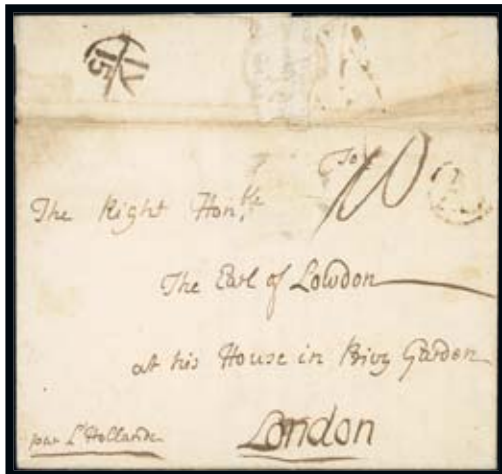 15
To
10
The Right Hon.ble
The Earl of Lowdon
at his House in Privy Garden
London
par L'Hollande